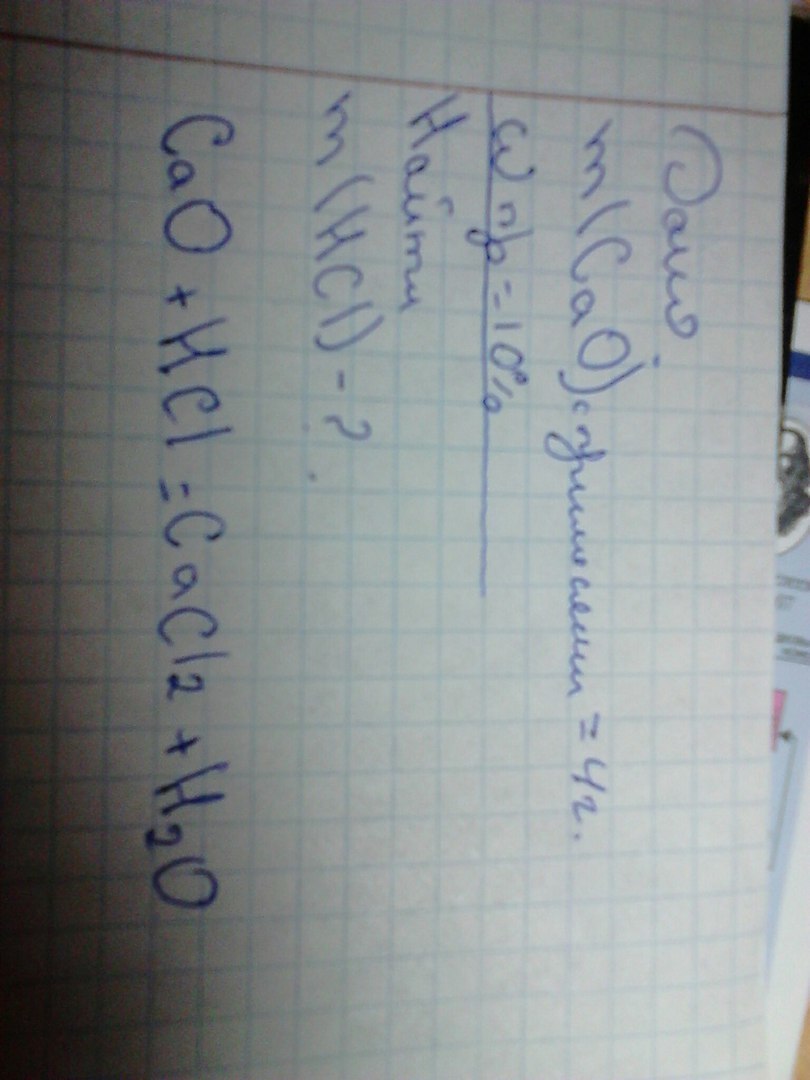 Дано
m(CaO) с примесями = 4г.
ω пр = 10%
Найти
m(HCl) - ?
CaO + HCl = CaCl2 + H2O